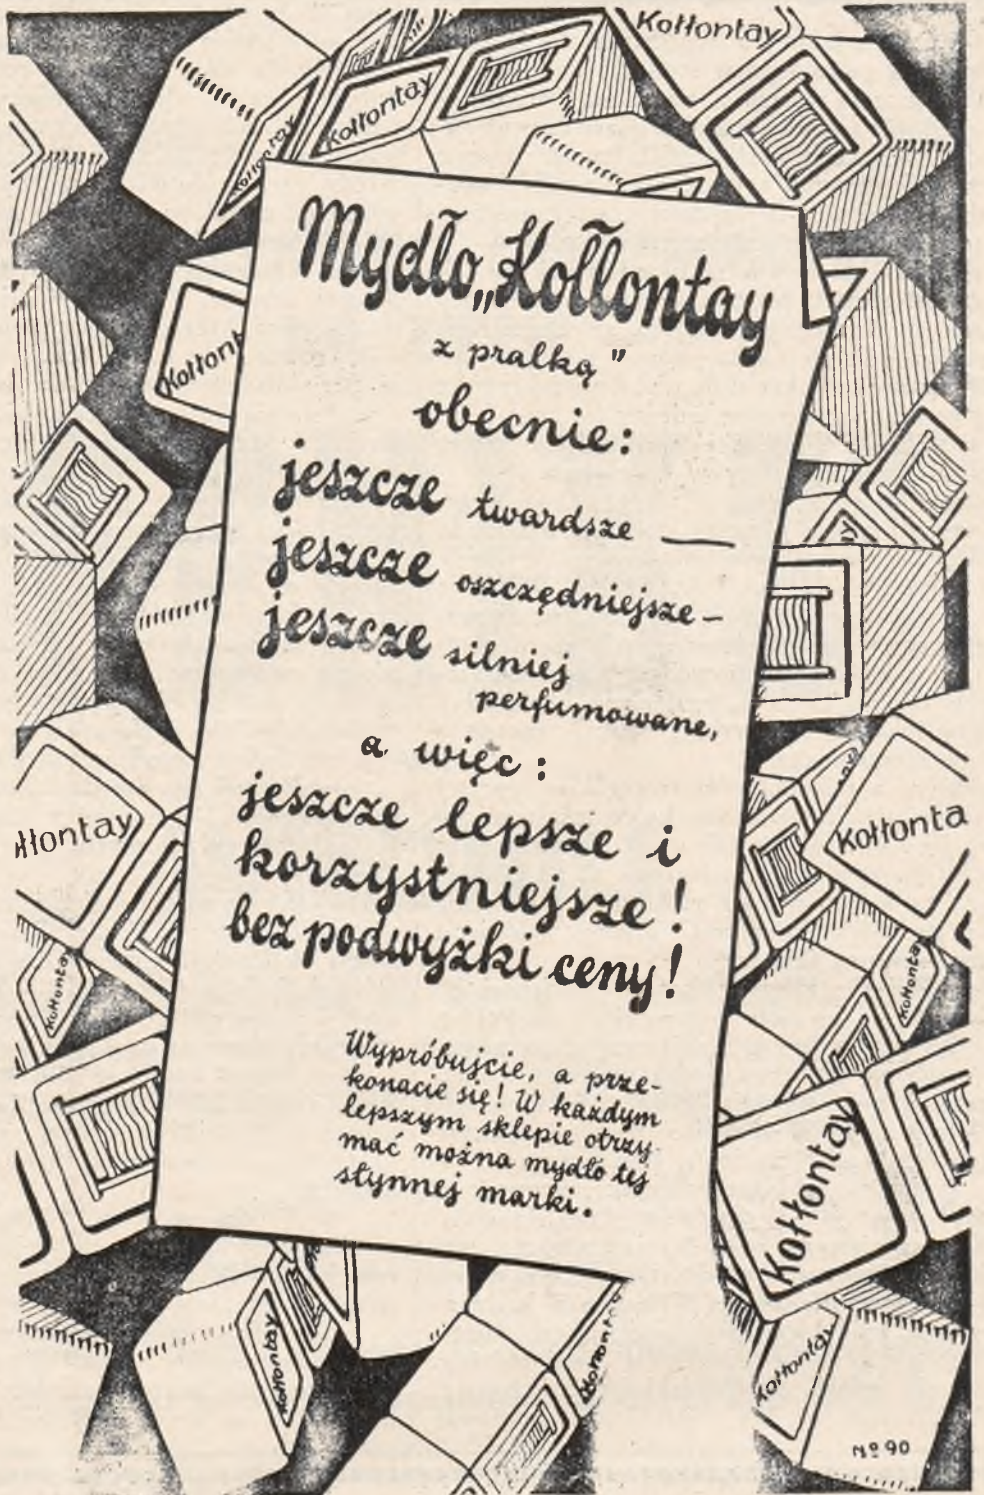 Kołłontay
Kołłontay
Kołłontay
Mydło „Kołłontay
z pralką"
obecnie:
jeszcze twardsze —
jeszcze oszczędniejsze –
jeszcze silniej
perfumowane,
a więc:
jeszcze lepsze i
korzystniejsze!
bez podwyżki ceny!
Wypróbujcie, a prze-
konacie się! W każdym
lepszym sklepie otrzy-
mać można mydło tej
słynnej marki.
Kołłont
łłontay
Kołłonta
Kołłontay
Kołłontay
Kołłontay
Kołłontay
Kołłontay
Kołłontay
№ 90